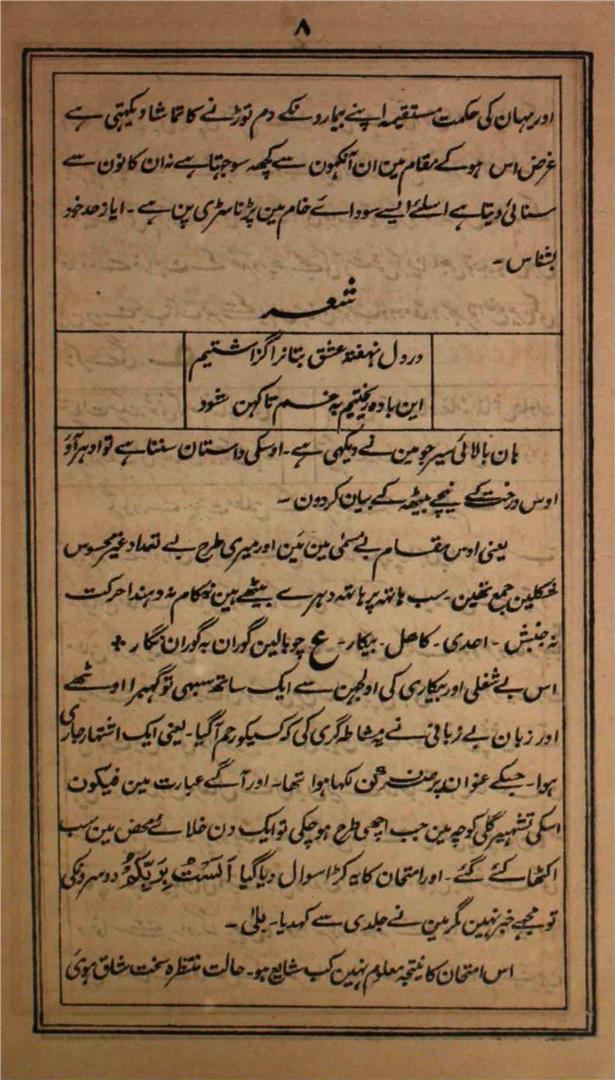 ۸
اور یہان کی حکمت مستقیمہ اپنے بیمارونکے دم توڑنے کا تماشا دیکہتی ہے
غرض اس ہو کے مقام مین ان آنکہون سے کچہہ سوجہتا ہے نہ ان کانون سے
سنائی دیتا ہے اسلئے ایسے سوداے خام مین پڑنا سٹری پن ہے ۔ ایاز حد خود
بشناس ۔
شعر
در دل نہفتہ عشق بتانرا گزاشتیم
این بادہ ریختیم بہ خم تا کہن شود
ہان بالائی سیر جو مین نے دیکہی ہے ۔ اوسکی داستان سننا ہے تو ادہر آؤ
اوس درخت کے نیچے بیٹہہ کے بیان کردون ۔
یعنی اوس مقام بے مسمیٰ مین مَین اور میری طرح بے تعداد غیر محسوس
شکلین جمع تہین ۔ سب ہاتہہ پر ہاتہہ دہرے بیٹہے ہین نہ کام نہ دہندا حرکت
نہ جنبش ۔ احدی ۔ کاہل ۔ بیکار ۔ ع چو بالین گوران بہ گوران نگار +
اس بے شغلی اور بیکاری کی اولجہن سے ایک ساتہہ سبہی تو گہبرا اوٹہے
اور زبان بے زبانی نے یہ مشاطہ گری کی کہ کسیکو رحم آگیا ۔ یعنی ایک اشتہار جاری
ہوا ۔ جسکے عنوان پر کُن لکہا ہوا تہا ۔ اور آگے عبارت مین فیکون
اسکی تشہیر گلی کوچہ مین جب اچہی طرح ہوچکی تو ایک دن خلاے محض مین سب
اکٹہا کئے گئے ۔ اور امتحان کا یہ کڑا سوال دیا گیا اَلَسْتُ بِرَبِّکُمْ دوسرونکی
تو مجہے خبر نہین مگر مین نے جلدی سے کہدیا ۔ بلیٰ ۔
اس امتحان کا نتیجہ معلوم نہین کب شایع ہو ۔ حالت منتظرہ سخت شاق ہوئی